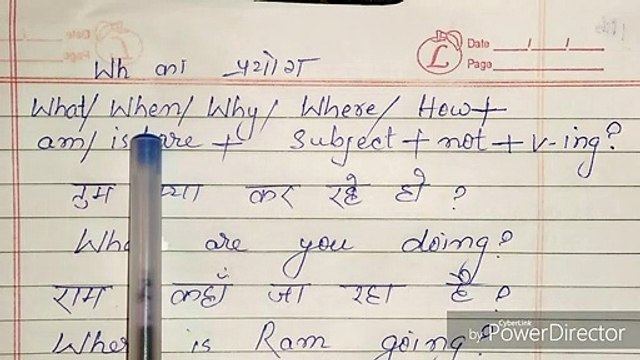 Date
Page
Wh का प्रयोग
What/ When/ Why/ Where/ How+
am/ is are + Subject + not + v-ing?
तुम कर रहे हो ?
are you doing?
राम कहाँ जा रहा है ?
is Ram going?
by CyberLink PowerDirector